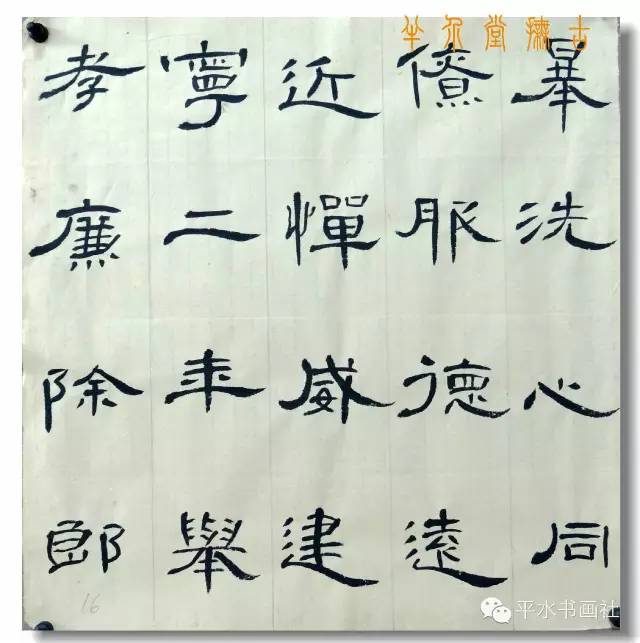 半 堂 古
暴洗心同
僚服德遠
近憚威建
寧二年舉
孝廉除郎
16
平水书画社